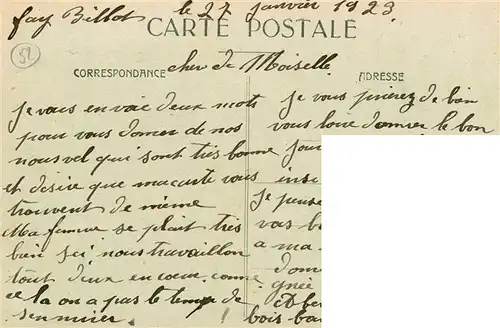 fay Billot le 27 janvier 1923
CARTE POSTALE
52
CORRESPONDANCE cher de Moiselle ADRESSE
je vous envoie deux mots
pour vous donner de nos
nouvel qui sont très bonne
et désire que ma carte vous
trouvent de même
Ma femme se plait très
bien ici nous travaillon
tout deux en coeur comme
ce la on a pas le temp de
sennuier !
je vous prierez de bien
vous loire donner le bon
jour
insi
je pense
vas b
a ma
dom
gnée
A ber
bois ba